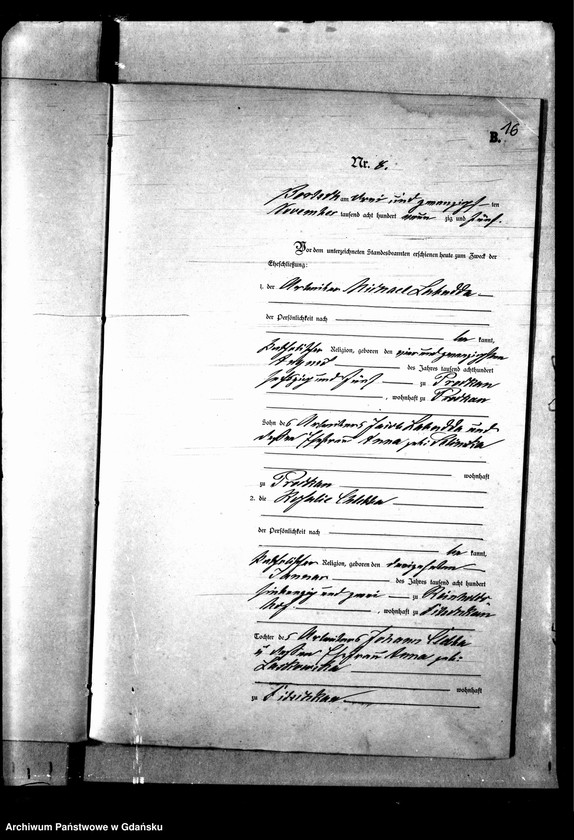 B. 16
Nr. 8.
am drei und zwanzigsten
November tausend acht hundert neun zig und fünf.
Vor dem unterzeichneten Standesbeamten erschienen heute zum Zweck der
Eheschließung:
1. der Arbeiter Michael Labudda
der Persönlichkeit nach
be kannt,
katholischer Religion, geboren den vier und zwanzigsten
August des Jahres tausend achthundert
sechszig und fünf zu
, wohnhaft zu
Sohn des Arbeiters Jacob Labudda und
dessen Ehefrau Anna geb.
wohnhaft
zu
2. die Rosalie
der Persönlichkeit nach
be kannt,
katholischer Religion, geboren den
Januar des Jahres tausend acht hundert
siebenzig und zwei zu
, wohnhaft zu
Tochter des Arbeiters Johann
u. dessen Ehefrau Anna geb.
wohnhaft
zu
Archiwum Państwowe w Gdańsku